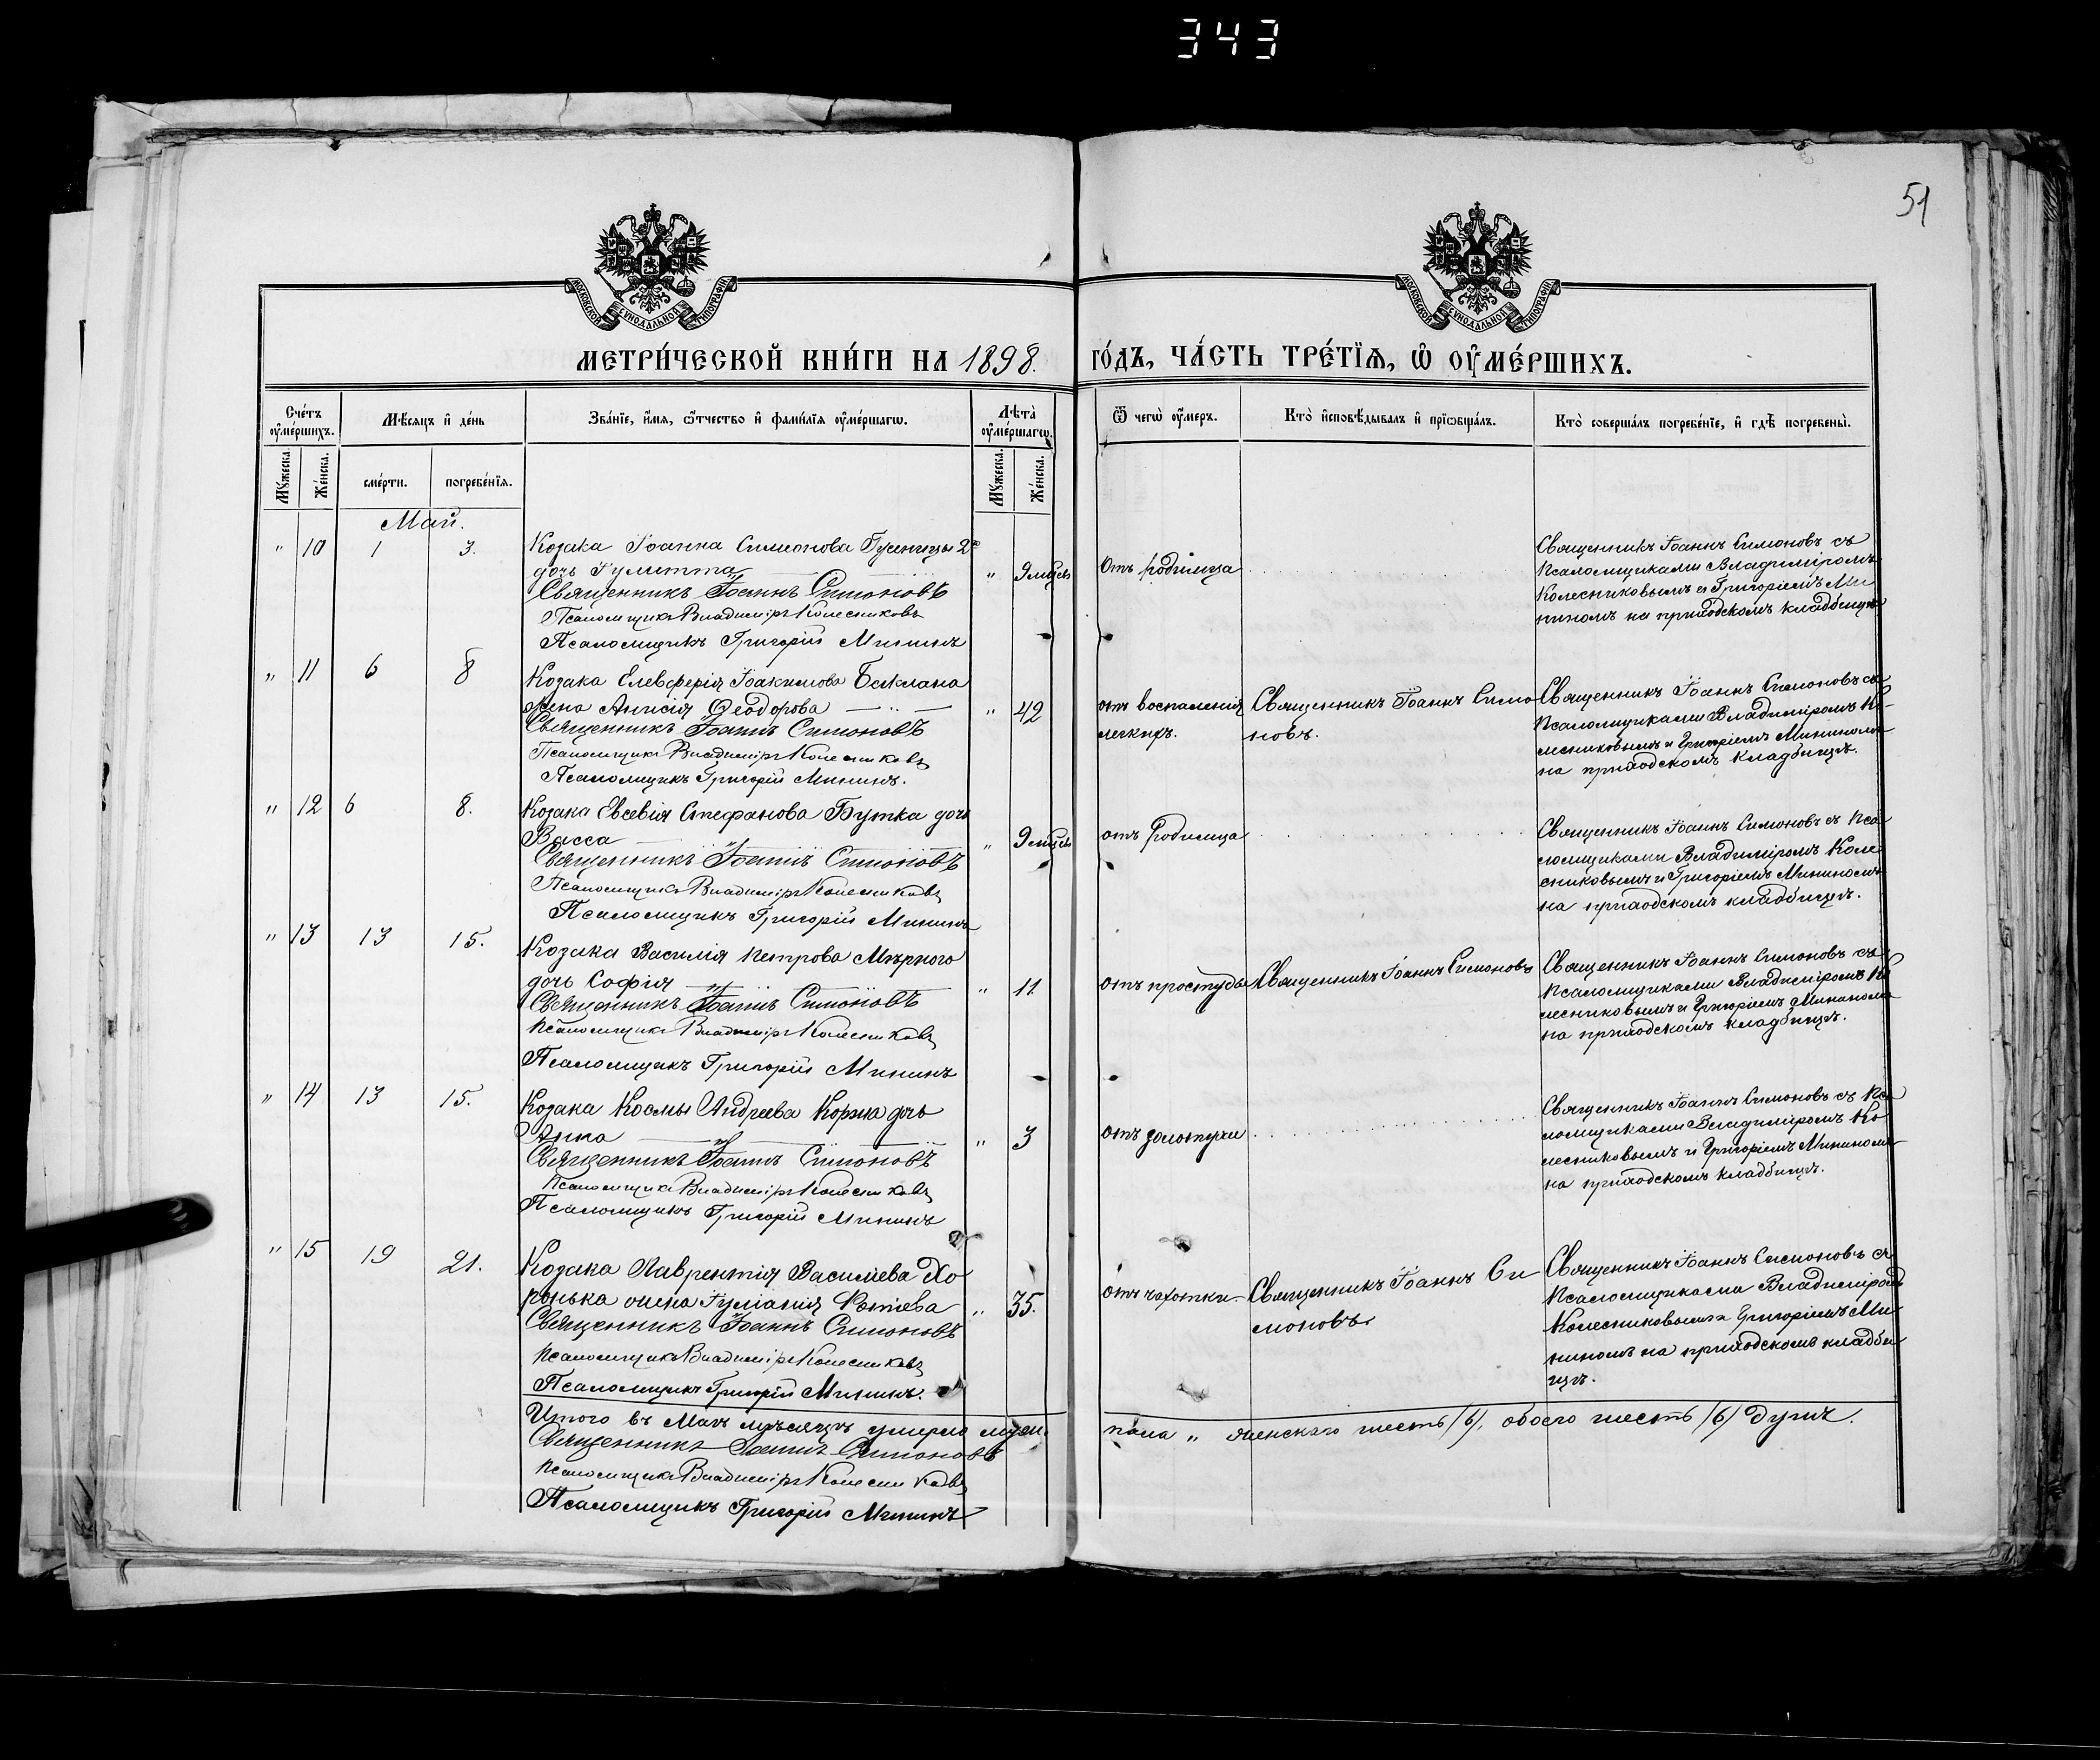 343
51
МОСКОВСКОЙ СѴНОДАЛЬНОЙ ТИПОГРАФІИ
МОСКОВСКОЙ СѴНОДАЛЬНОЙ ТИПОГРАФІИ
МЕТРИ́ЧЕСКОЙ КНИ́ГИ НА 1898. ГО́ДЪ, ЧА́СТЬ ТРЕ́ТЇѦ, Ѡ҆ ОУ҆МЕ́РШИХЪ.
Сче́тъ оу҆ме́ршихъ.
Мѣ́сяцъ и҆ де́нь
Зва́нїе, и҆́мя, ѻ҆́тчество и҆ фами́лїя оу҆ме́ршагѡ.
Лѣта̀ оу҆ме́ршагѡ.
Ѿ чегѡ̀ оу҆́меръ.
Кто̀ и҆сповѣ́дывалъ и҆ прїѡбща́лъ.
Кто̀ соверша́лъ погребе́нїе, и҆ гдѣ̀ погребены̀.
Мꙋ́жеска.
Же́нска.
сме́рти.
погребе́нїя.
Мꙋ́жеска.
Же́нска.
Май.
" 10 1 3.
Козака Іоанна Симеонова Гусеницы 2го
дочь Іулитта " 9 мѣсѣ
Священникъ Іоаннъ Симоновъ
Псаломщикъ Владиміръ Колесниковъ
Псаломщикъ Григорій Мининъ
Отъ родимца
Священникъ Іоаннъ Симоновъ съ
псаломщиками Владиміромъ
Колесниковымъ и Григоріемъ Ми
нинымъ на приходскомъ кладбищѣ
" 11 6 8
Козака Елевферія Іоакимова Баклана
жена Анисія Ѳеодорова " 42
Священникъ Іоаннъ Симоновъ
Псаломщикъ Владиміръ Колесниковъ
Псаломщикъ Григорій Мининъ.
отъ воспаленія
легкихъ.
Священникъ Іоаннъ Симо
новъ.
Священникъ Іоаннъ Симоновъ съ
псаломщиками Владиміромъ Ко-
лесниковымъ и Григоріемъ Мининомъ
на приходскомъ кладбищѣ.
" 12 6 8.
Козака Евсевія Стефанова Бутка дочь
Васса " 9 мѣсѣ
Священникъ Іоаннъ Симоновъ
Псаломщикъ Владиміръ Колесниковъ
Псаломщикъ Григорій Мининъ
отъ родимца
Священникъ Іоаннъ Симоновъ съ пса
ломщиками Владиміромъ Коле
сниковымъ и Григоріемъ Мининомъ
на приходскомъ кладбищѣ.
" 13 13 15.
Козака Василія Петрова Мѣрного
дочь Софія " 11
Священникъ Іоаннъ Симоновъ
Псаломщикъ Владиміръ Колесниковъ
Псаломщикъ Григорій Мининъ
отъ простуды
Священникъ Іоаннъ Симоновъ
Священникъ Іоаннъ Симоновъ съ
псаломщиками Владиміромъ Ко
лесниковымъ и Григоріемъ Мининомъ
на приходскомъ кладбищѣ.
" 14 13 15.
Козака Космы Андреева Коржа дочь
Анна " 3
Священникъ Іоаннъ Симоновъ
Псаломщикъ Владиміръ Колесниковъ
Псаломщикъ Григорій Мининъ
отъ золотухи
Священникъ Іоаннъ Симоновъ съ пса
ломщиками Владиміромъ Ко
лесниковымъ и Григоріемъ Мининомъ
на приходскомъ кладбищѣ.
" 15 19 21.
Козака Лаврентія Василіева Хо
ронька жена Іуліанія Фотіева " 35.
Священникъ Іоаннъ Симоновъ
Псаломщикъ Владиміръ Колесниковъ
Псаломщикъ Григорій Мининъ.
отъ чахотки.
Священникъ Іоаннъ Си
моновъ.
Священникъ Іоаннъ Симоновъ съ
псаломщиками Владиміромъ
Колесниковымъ и Григоріемъ Ми
нинымъ на приходскомъ кладби
щѣ.
Итого въ Маѣ мѣсяцѣ умерло муж. пола " женскаго шесть /6/, обоего шесть /6/ душъ.
Священникъ Іоаннъ Симоновъ
Псаломщикъ Владиміръ Колесниковъ
Псаломщикъ Григорій Мининъ